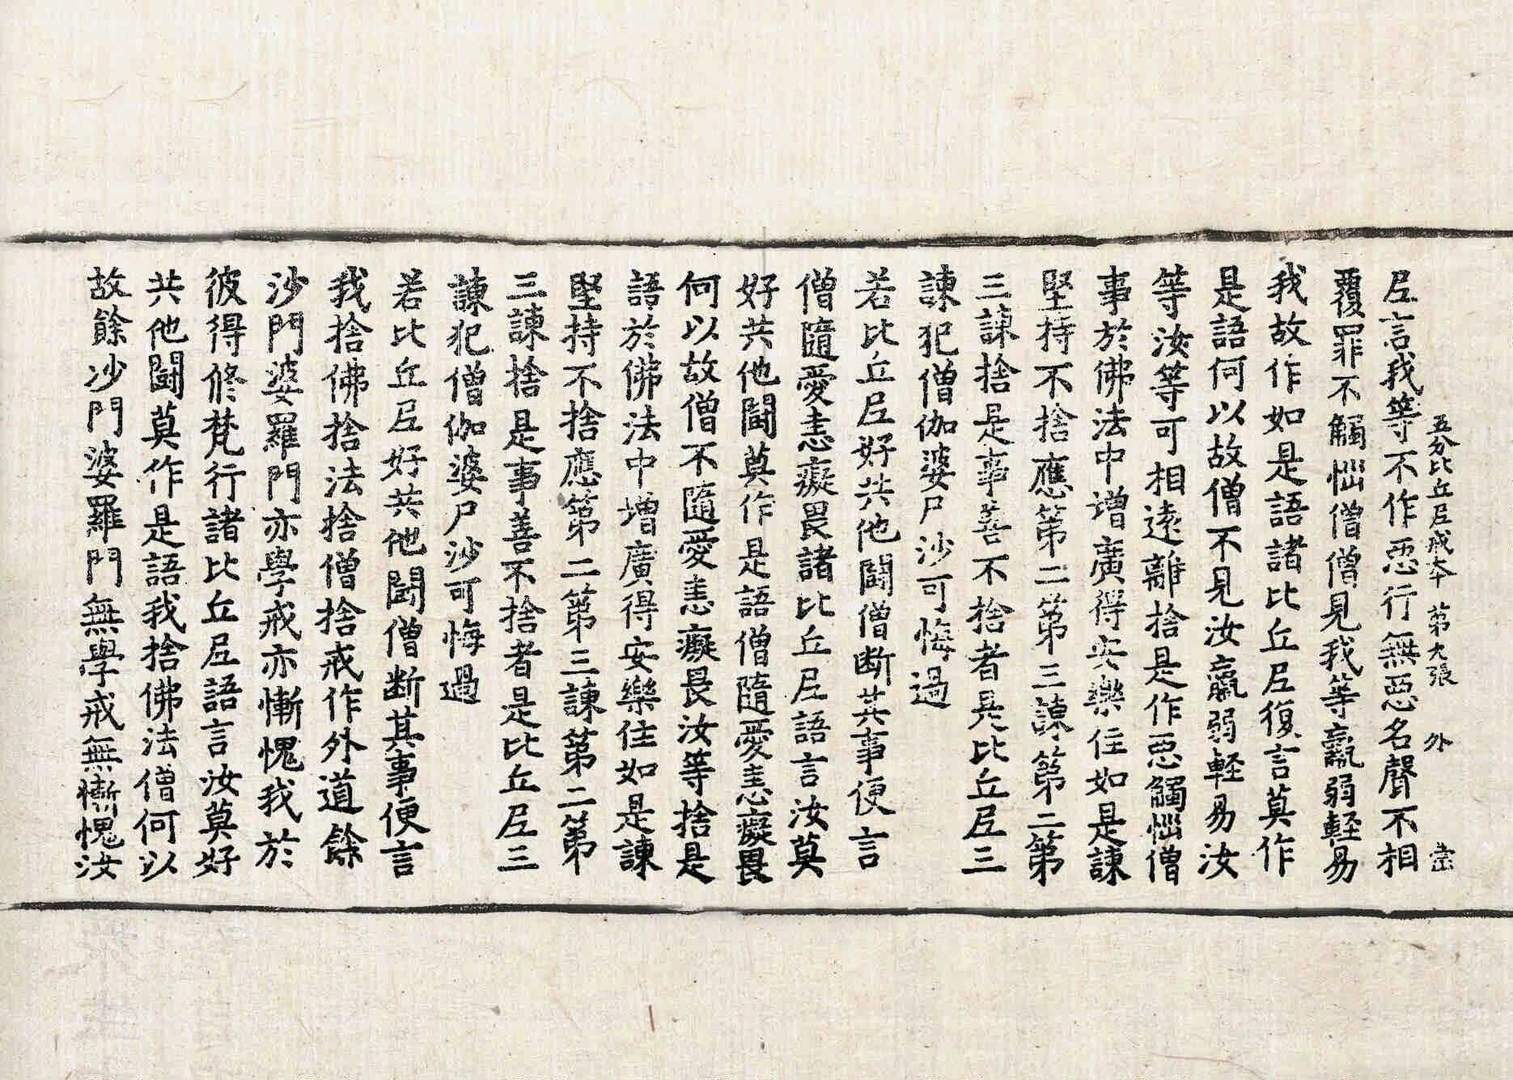 五分比丘尼戒本 第六張 外
尼言我等不作惡行無惡名聲不相
覆罪不觸惱僧僧見我等羸弱輕易
我故作如是語諸比丘尼復言莫作
是語何以故僧不見汝羸弱輕易汝
等汝等可相遠離捨是作惡觸惱僧
事於佛法中增廣得安樂住如是諫
堅持不捨應第二第三諫第二第
三諫捨是事善不捨者是比丘尼三
諫犯僧伽婆尸沙可悔過
若比丘尼好共他鬪僧斷其事便言
僧隨愛恚癡畏諸比丘尼語言汝莫
好共他鬪莫作是語僧隨愛恚癡畏
何以故僧不隨愛恚癡畏汝等捨是
語於佛法中增廣得安樂住如是諫
堅持不捨應第二第三諫第二第
三諫捨是事善不捨者是比丘尼三
諫犯僧伽婆尸沙可悔過
若比丘尼好共他鬪僧斷其事便言
我捨佛捨法捨僧捨戒作外道餘
沙門婆羅門亦學戒亦慚愧我於
彼得修梵行諸比丘尼語言汝莫好
共他鬪莫作是語我捨佛法僧何以
故餘沙門婆羅門無學戒無慚愧汝